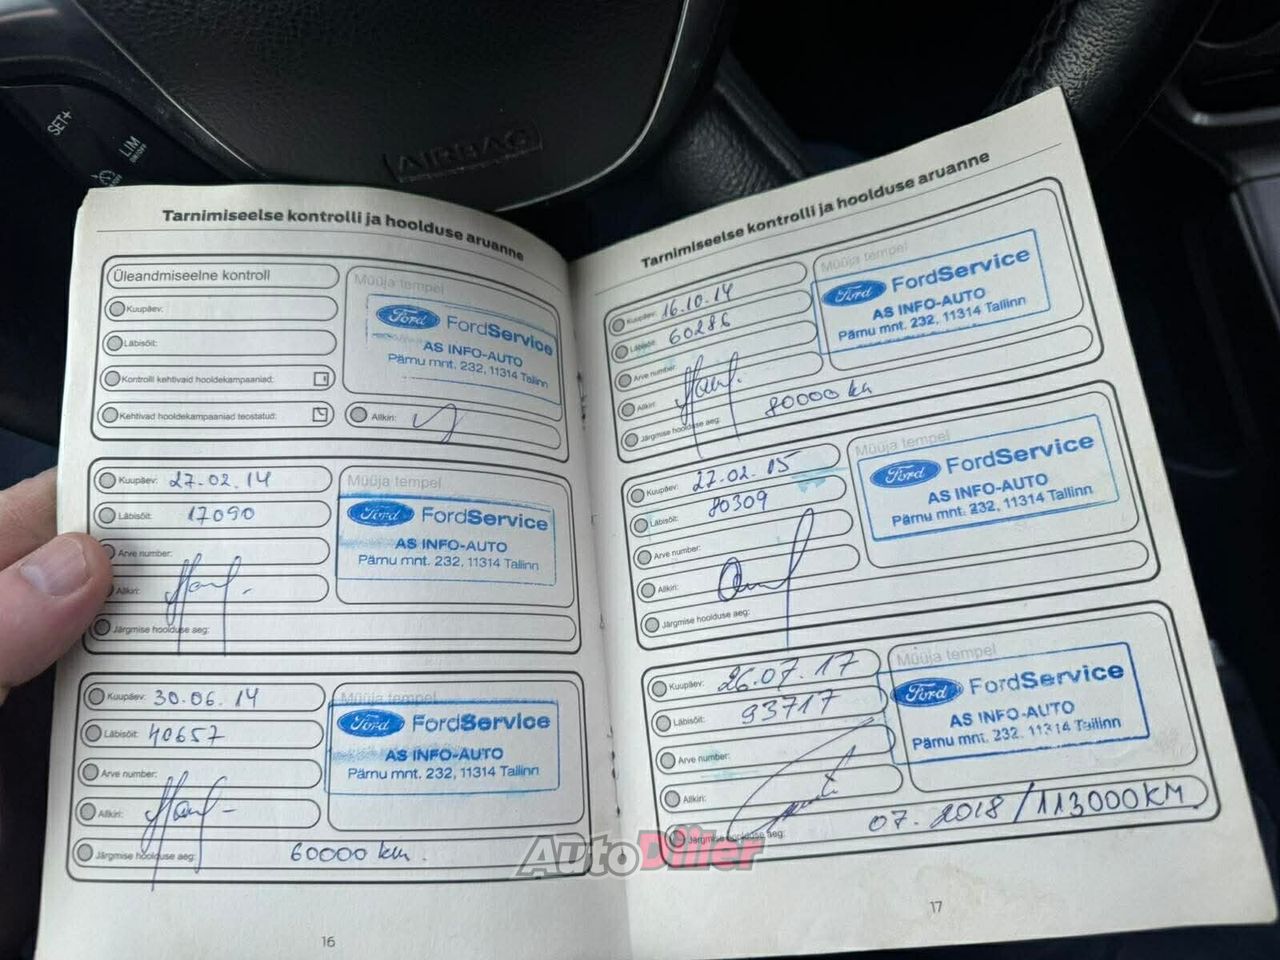 SET+
LIM
ON/OFF
AIRBAG
Tarnimiseelse kontrolli ja hoolduse aruanne
Üleandmiseelne kontroll
Müüja tempel
Kuupäev:
Läbisõit:
Kontrolli kehtivaid hooldekampaaniad:
Kehtivad hooldekampaaniad teostatud:
Allkiri:
Ford FordService
AS INFO-AUTO
Pärnu mnt. 232, 11314 Tallinn
Kuupäev: 27.02.14
Läbisõit: 17090
Arve number:
Allkiri:
Järgmise hoolduse aeg:
Müüja tempel
Ford FordService
AS INFO-AUTO
Pärnu mnt. 232, 11314 Tallinn
Kuupäev: 30.06.14
Läbisõit: 40657
Arve number:
Allkiri:
Järgmise hoolduse aeg: 60000 km.
Müüja tempel
Ford FordService
AS INFO-AUTO
Pärnu mnt. 232, 11314 Tallinn
16
Tarnimiseelse kontrolli ja hoolduse aruanne
Kuupäev: 16.10.14
Läbisõit: 60286
Arve number:
Allkiri:
Järgmise hoolduse aeg: 80000 km
Müüja tempel
Ford FordService
AS INFO-AUTO
Pärnu mnt. 232, 11314 Tallinn
Kuupäev: 27.02.15
Läbisõit: 80309
Arve number:
Allkiri:
Järgmise hoolduse aeg:
Müüja tempel
Ford FordService
AS INFO-AUTO
Pärnu mnt. 232, 11314 Tallinn
Kuupäev: 26.07.17
Läbisõit: 93717
Arve number:
Allkiri:
Järgmise hoolduse aeg: 07.2018/113000KM.
Müüja tempel
Ford FordService
AS INFO-AUTO
Pärnu mnt. 232, 11314 Tallinn
17
AutoDiler